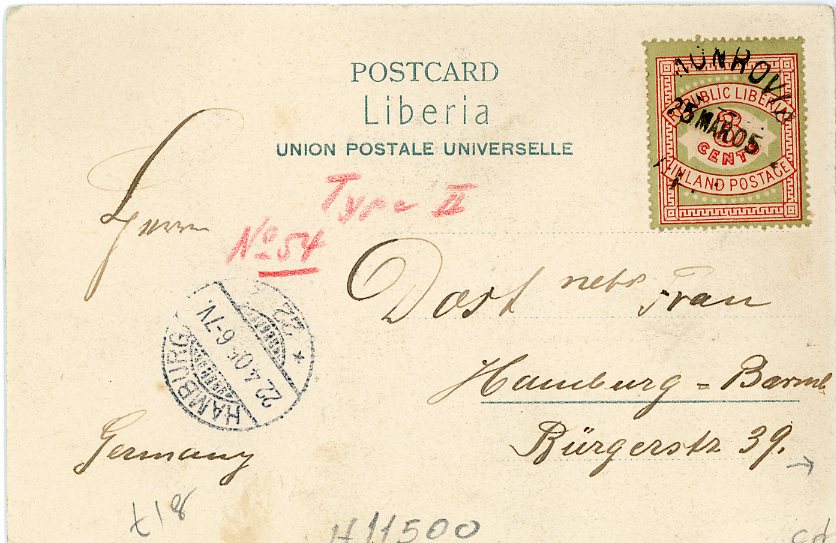 POSTCARD
Liberia
UNION POSTALE UNIVERSELLE
MONROVIA
25 MAR 05
REPUBLIC LIBERIA
3
CENTS
INLAND POSTAGE
Type II
No 54
Herrn
Dost nebs Frau
Hamburg = Barmb
Bürgerstr 39.
Germany
HAMBURG
22.4.05.6-7V.
22
H11500